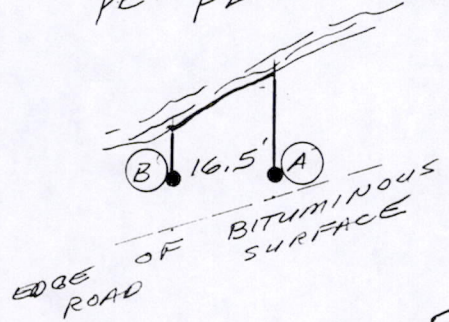 PC PL
B 16.5' A
EDGE OF BITUMINOUS
ROAD SURFACE